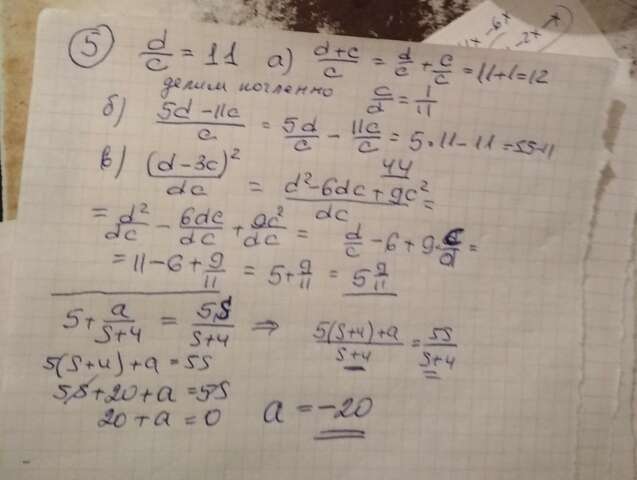 -6x -2x
5 d/c = 11 а) (d+c)/c = d/c + c/c = 11+1=12
делим почленно c/d = 1/11
б) (5d-11c)/c = 5d/c - 11c/c = 5·11-11=55-11
44
в) (d-3c)²/dc = (d²-6dc+9c²)/dc =
= d²/dc - 6dc/dc + 9c²/dc = d/c - 6 + 9·c/d =
= 11-6+9/11 = 5+9/11 = 5 9/11
5+a/(s+4) = 5s/(s+4) ⇒ (5(s+4)+a)/(s+4) = 5s/(s+4)
5(s+4)+a=5s
5s+20+a=5s
20+a=0 a=-20